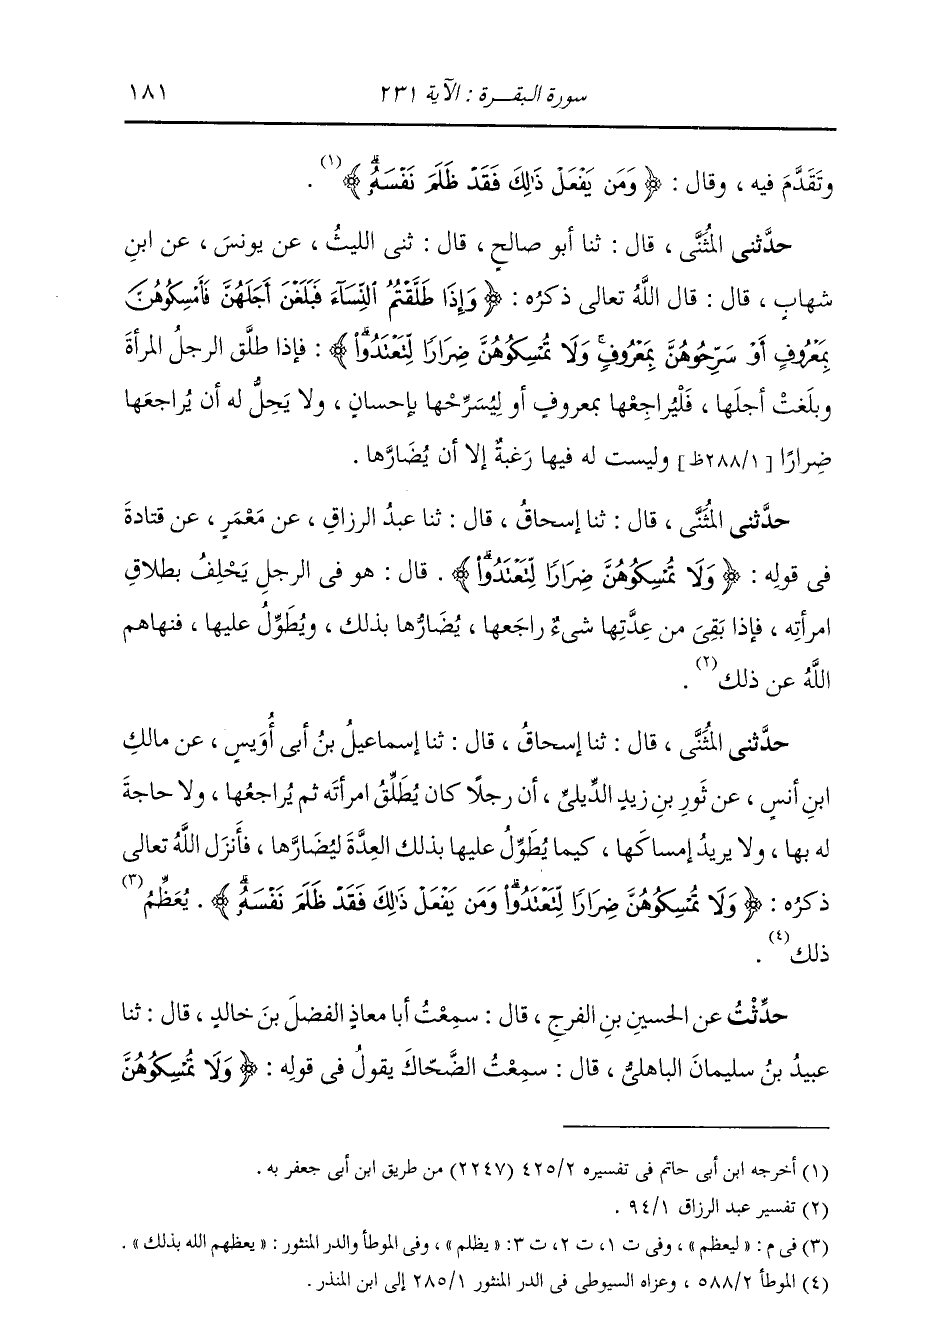 سورة البقرة : الآية ٢٣١ ١٨١
وتَقَدَّمَ فيه ، وقال : ﴿ وَمَن يَفْعَلْ ذَٰلِكَ فَقَدْ ظَلَمَ نَفْسَهُۥ ﴾(١) .
حدَّثنى المُثَنَّى ، قال : ثنا أبو صالحٍ ، قال : ثنى الليثُ ، عن يونسَ ، عن ابنِ
شهابٍ ، قال : قال اللَّهُ تعالى ذكرُه : ﴿ وَإِذَا طَلَّقْتُمُ ٱلنِّسَآءَ فَبَلَغْنَ أَجَلَهُنَّ فَأَمْسِكُوهُنَّ
بِمَعْرُوفٍ أَوْ سَرِّحُوهُنَّ بِمَعْرُوفٍ ۚ وَلَا تُمْسِكُوهُنَّ ضِرَارًا لِّتَعْتَدُوا۟ ۚ ﴾ : فإذا طلَّق الرجلُ المرأةَ
وبلَغتْ أجلَها ، فَلْيُراجِعْها بمعروفٍ أو لِيُسَرِّحْها بإحسانٍ ، ولا يَحِلُّ له أن يُراجعَها
ضِرارًا [٢٨٨/١ظ] وليست له فيها رَغبةٌ إلا أن يُضَارَّها .
حدَّثنى المُثَنَّى ، قال : ثنا إسحاقُ ، قال : ثنا عبدُ الرزاقِ ، عن مَعْمَرٍ ، عن قتادةَ
فى قولِه : ﴿ وَلَا تُمْسِكُوهُنَّ ضِرَارًا لِّتَعْتَدُوا۟ ۚ ﴾ . قال : هو فى الرجلِ يَحْلِفُ بطلاقِ
امرأتِه ، فإذا بَقِىَ من عِدَّتِها شىءٌ راجَعها ، يُضَارُّها بذلك ، ويُطَوِّلُ عليها ، فنهاهم
اللَّهُ عن ذلك(٢) .
حدَّثنى المُثَنَّى ، قال : ثنا إسحاقُ ، قال : ثنا إسماعيلُ بنُ أبى أُوَيسٍ ، عن مالكِ
ابنِ أنسٍ ، عن ثَورِ بنِ زيدٍ الدِّيلىِّ ، أن رجلًا كان يُطَلِّقُ امرأتَه ثم يُراجعُها ، ولا حاجةَ
له بها ، ولا يريدُ إمساكَها ، كيما يُطَوِّلُ عليها بذلك العِدَّةَ ليُضَارَّها ، فأَنزَل اللَّهُ تعالى
ذكرُه : ﴿ وَلَا تُمْسِكُوهُنَّ ضِرَارًا لِّتَعْتَدُوا۟ ۚ وَمَن يَفْعَلْ ذَٰلِكَ فَقَدْ ظَلَمَ نَفْسَهُۥ ۚ ﴾ . يُعَظِّمُ(٣)
ذلك(٤) .
حدِّثْتُ عن الحسينِ بنِ الفرجِ ، قال : سمِعْتُ أبا معاذٍ الفضلَ بنَ خالدٍ ، قال : ثنا
عبيدُ بنُ سليمانَ الباهلىُّ ، قال : سمِعْتُ الضَّحّاكَ يقولُ فى قولِه : ﴿ وَلَا تُمْسِكُوهُنَّ
(١) أخرجه ابن أبى حاتم فى تفسيره ٤٢٥/٢ (٢٢٤٧) من طريق ابن أبى جعفر به .
(٢) تفسير عبد الرزاق ٩٤/١ .
(٣) فى م : « ليعظم » ، وفى ت ١، ت ٢، ت ٣: « يظلم » ، وفى الموطأ والدر المنثور : « يعظهم الله بذلك » .
(٤) الموطأ ٥٨٨/٢ ، وعزاه السيوطى فى الدر المنثور ٢٨٥/١ إلى ابن المنذر .